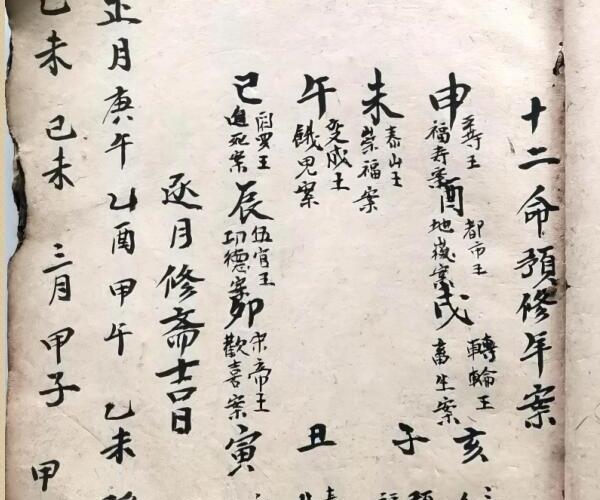 十二命預修年案
申 尊王 福寿案 酉 都市王 地獄案 戌 轉輪王 畜生案 亥
未 泰山王 崇福案 子
午 变成王 餓鬼案 丑
巳 罗王 死案 辰 伍官王 功德案 卯 宋帝王 歡喜案 寅
逐月修斋吉日
正月庚午乙酉甲午乙未
己未 己未 三月甲子 甲